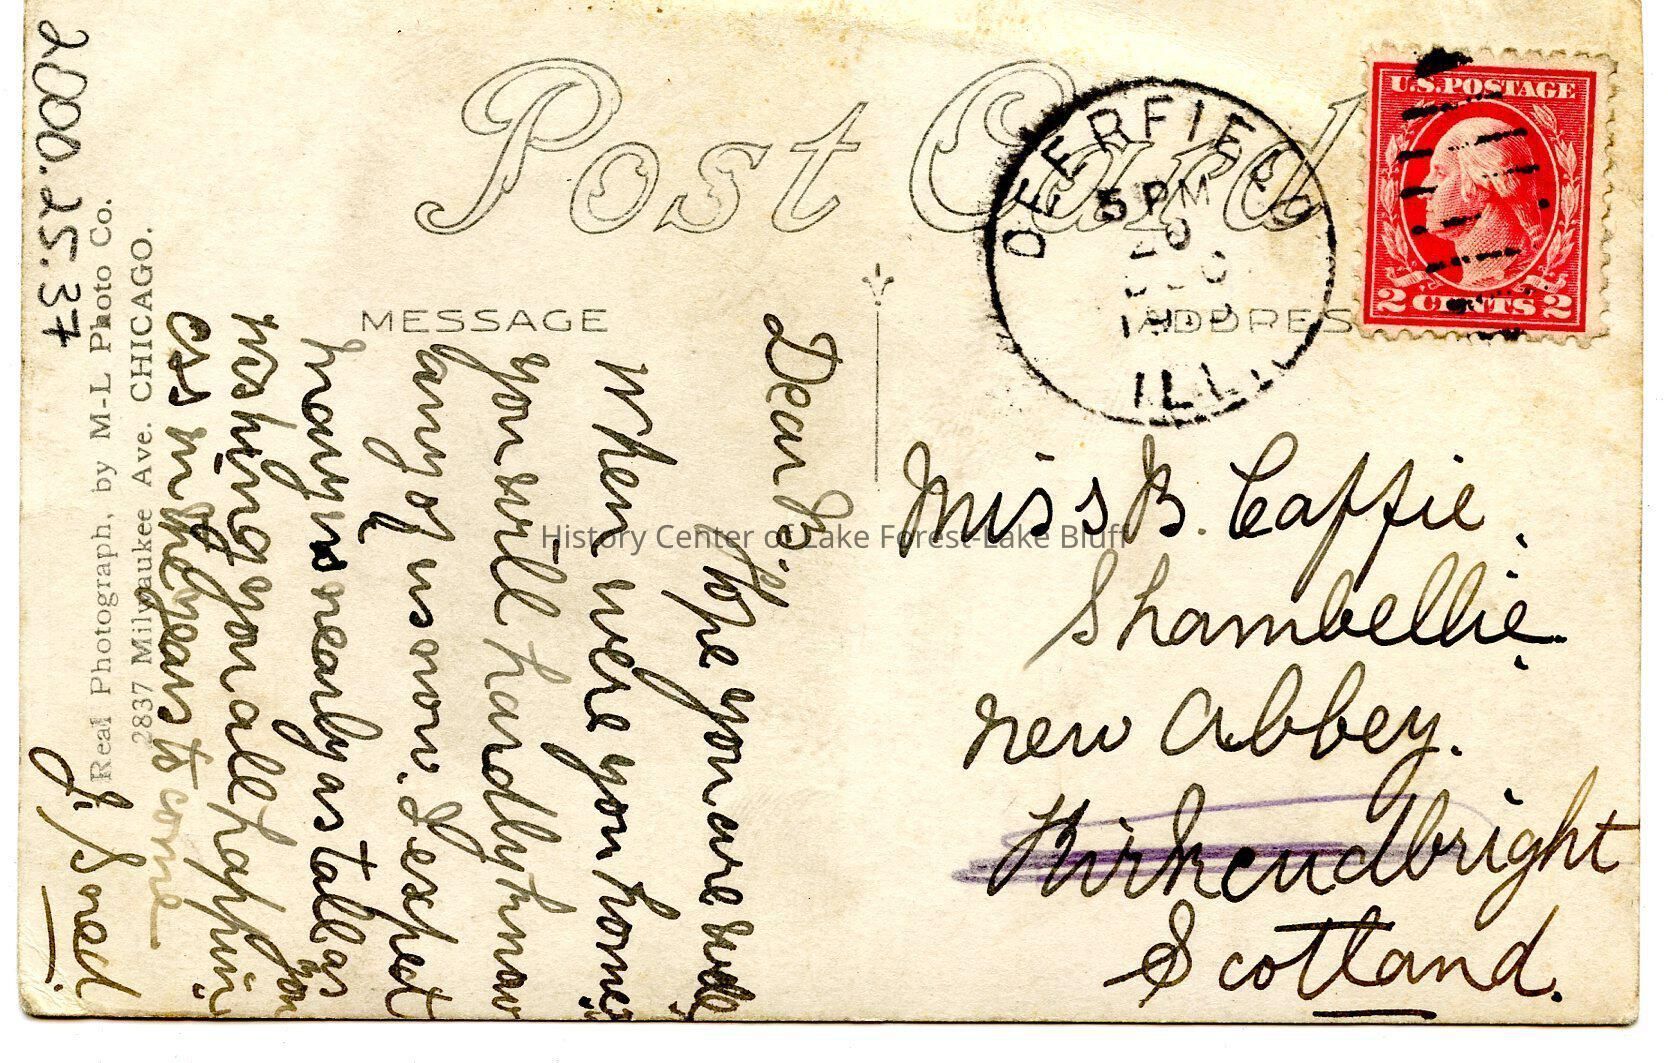 2000.25.37
Post Card
MESSAGE
ADDRES
DEERFIELD
5 PM
20
ILL.
U.S. POSTAGE
2 CENTS 2
Real Photograph, by M-L Photo Co.
2837 Milwaukee Ave. CHICAGO.
Dear B.
Hope you are well
When were you home
you will hardly know
any of us now. I expect
Mary is nearly as tall as you
Wishing you all happin
ess in the years to come
J.
Miss B. Caffie.
Shambellie.
New Abbey.
Kirkcudbright
Scotland.
History Center of Lake Forest-Lake Bluff